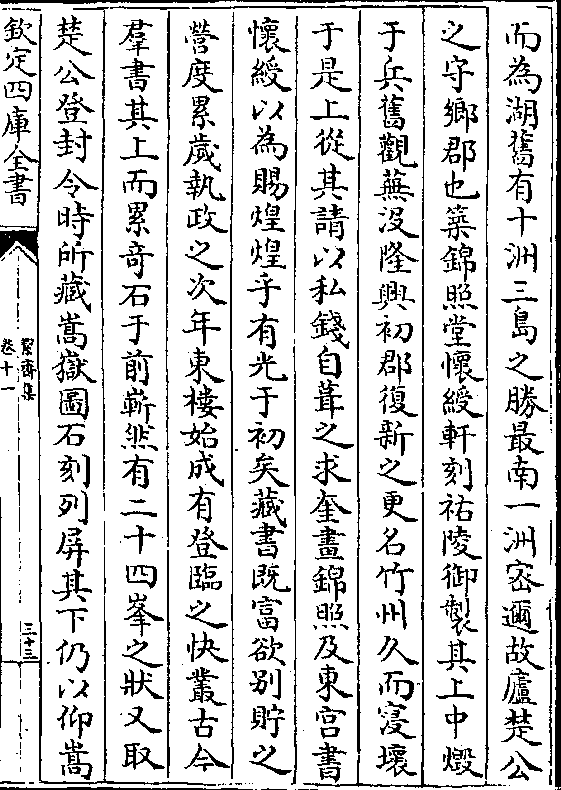 而為湖舊有十洲三島之勝最南一洲宻邇故廬楚公
之守鄉郡也築錦照堂懷綬軒刻祐陵御製其上中燬
于兵舊觀蕪沒隆興初郡復新之更名竹州久而寖壞
于是上從其請以私錢自葺之求奎畫錦照及東宫書
懷綬以為賜煌煌乎有光于初矣藏書既富欲别貯之
營度累嵗執政之次年東樓始成有登臨之快叢古今
羣書其上而累竒石于前嶄然有二十四峯之狀又取
楚公登封令時所藏嵩嶽圖石刻列屏其下仍以仰嵩
欽定四庫全書
絜齋集
卷十一
三十三